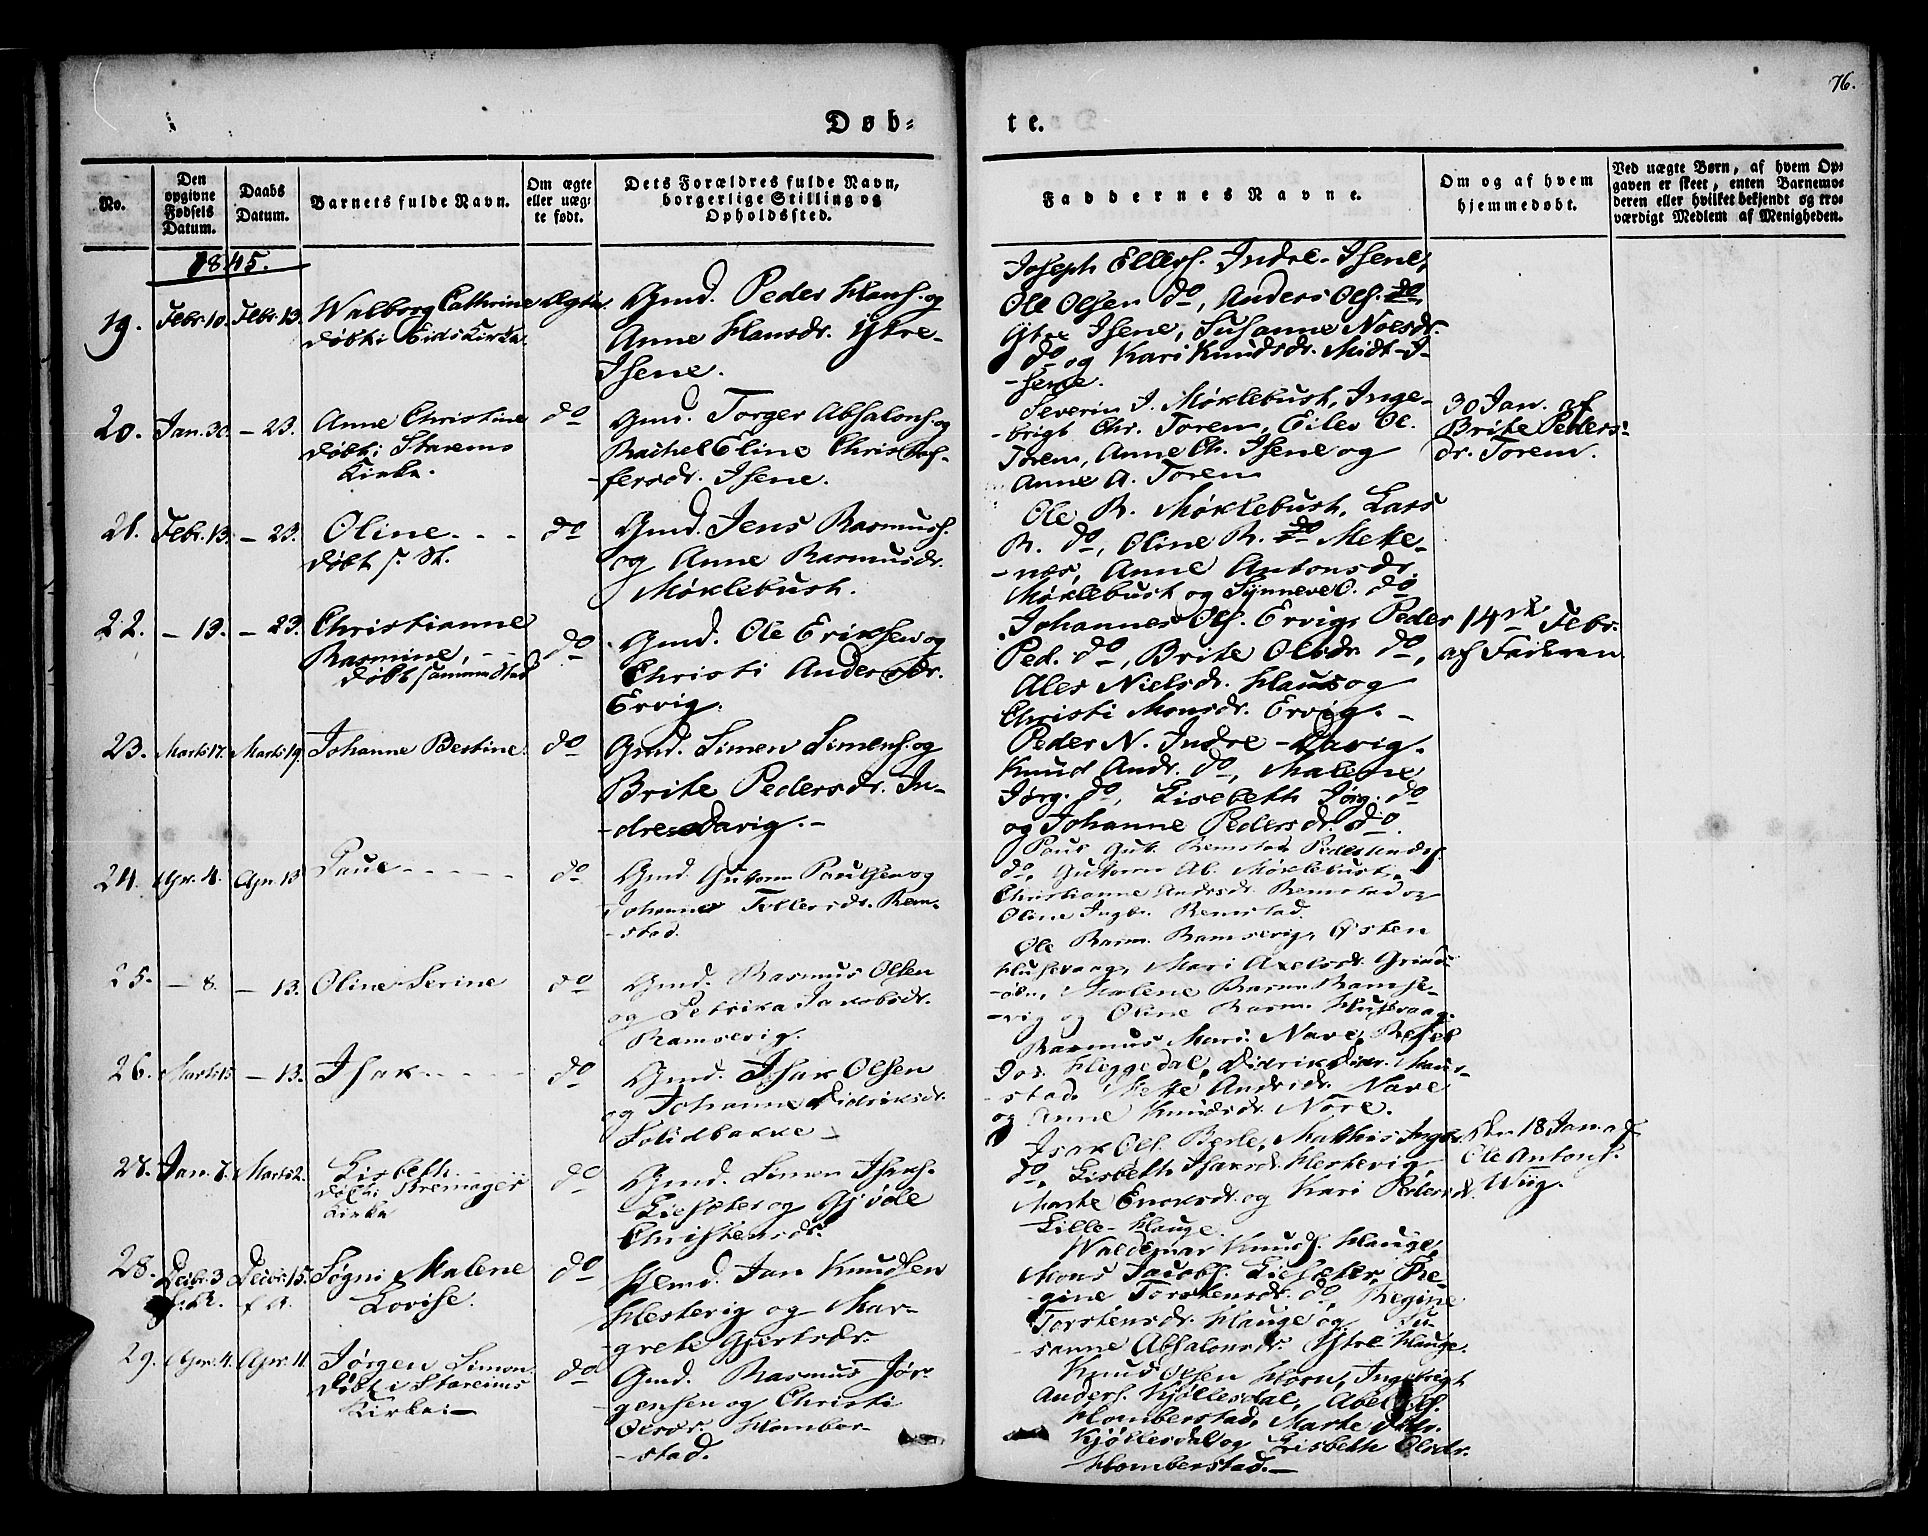 76.
Døb-
te.
No.
Den
opgivne
Fødsels
Datum.
Daabs
Datum.
Barnets fulde Navn.
Om ægte
eller uæg-
te født.
Dets Forældres fulde Navn,
borgerlige Stilling og
Opholdssted.
Faddernes Navne.
Om og af hvem
hjemmedøbt.
Ved uægte Børn, af hvem Op-
gaven er skeet, enten Barnemo-
deren eller hvilket bekjendt og tro-
værdigt Medlem af Menigheden.
1845.
19. Febr. 10. Febr. 13. Walborg Cathrine Ægte.
døbt i Eids Kirke.
Gmd. Peder Hans. og
Anne Hansdr. Ytre-
Isene.
Joseph Ellers. Indre-Isene,
Ole Olsen do, Anders Ols. do
Ytre Isene, Susanne Noesdr.
do og Kari Knudsdr. Midt-I-
-sene.
20. Jan. 30. - 23. Anne Christine do
døbt i Starems
Kirke.
Gmd. Torger Absalons. og
Rachel Eline Christof-
fersdr. Isene.
Severin J. Møklebust, Inge-
-brigt Chr. Torem, Eilev Ol.
Torem, Anne Ch. Isene og
Anne A. Torem
30 Jan. af
Brite Peders-
dr. Torem.
21. Febr. 13. - 23. Oline - - - do
døbt s. St.
Gmd. Jens Rasmus.
og Anne Rasmusdr.
Møklebust.
Ole R. Møklebust, Lars
R. do, Oline R. do Mette-
-næs, Anne Antonsdr.
Møklebust og Synneve O. do
22. - 13. - 23. Christianne
Rasmine, - - do
døbt sammestad
Gmd. Ole Eriksen og
Christi Andersdr.
Ervig.
Johannes Ols. Ervig, Peder
Ped. do, Brite Olsdr. do,
Ales Nielsdr. Haus og
Christi Monsdr. Ervig. -
14de Febr.
af Faderen
23. Marts 17. Marts 19. Johanne Bertine. do
Gmd. Simen Simens. og
Brite Pedersdr. In-
-dre-Davig. -
Peder N. Indre-Davig.
Knud Andr. do, Malene
Jørg. do, Lisebeth Jørg. do
og Johanne Pedersdr. do.
24. Apr. 4. Apr. 13 Paul - - - - - do
Gmd. Gutorm Paulsen og
Johanne Tollersdr. Rem-
-stad.
Paul Gut. Remstad,
do, Gutorm Ab. Møklebust,
Christianne Andersdr. Remstad og
Oline Ingbr. Remstad.
25. - 8. - 13. Oline Serine do
Gmd. Rasmus Olsen
og Petrika Jakobsdr.
Ramsevig.
Ole Rasm. Ramsevig, Østen
Husevaag, Mari Axelsdr. Grind-
Malene Rasm. Ramse-
-vig og Oline Rasm. Husevaag.
26. Marts 15 - 13. Isak - - - - do
Gmd. Isak Olsen
og Johanne Didriksdr.
Solidbakke -
Rasmus Mari. Nave,
Jos. Heggedal, Didrik Didr. Maur-
-stad, Mette Andrsdr. Nave
og Anne Knudsdr. Nore.
28. Jan. 8. Marts 2. Lisbeth - -
døbt i Bremager do
Kirke
Gmd. Simon Isaks.
Liesæter og Gjøle
Christensdr.
Isak Ols. Berle, Mathis Ingebr.
do, Lisbeth Isaksdr. Hestevig,
Marte Enoksdr. og Kari Pedersdr.
Lille-Hauge.
18 Jan. af
Ole Antons.
Wiig.
28. Decbr. 3 Decbr. 15. Søgni Malene do
f. A. Lovise.
Hmd. Jan Knudsen
Hestevig og Mar-
grete Gjertsdr.
Waldemar Knuds. Hauge,
Mons Jacobs. Liesæter, Re-
-gine Torstensdr. do, Regine
Torstensdr. Hauge og Su-
sanne Absalonsdr. Ytre Hauge.
29. Apr. 4. Apr. 11. Jørgen Simon. do
døbt i Stareims
Kirke: -
Gmd. Rasmus Jør-
gensen og Christi
Olsdr. Homber-
-stad.
Knud Olsen Horn, Ingebrigt
Anders. Kjøllesdal, Abel
Homberstad, Marte
Kjøllesdal og Lisbeth Olsdr.
Homberstad. -